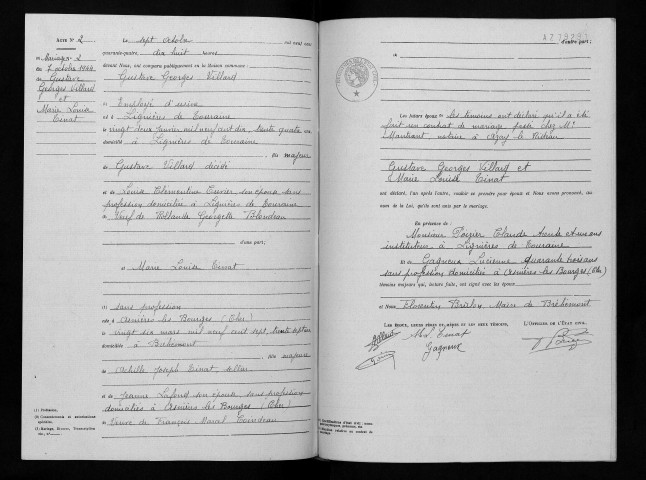 Acte N° 2
Mariage 2
du 7 octobre 1944
de Gustave
Georges Villard
et
Marie Louise
Tinat
Le sept octobre mil neuf cent
quarante-quatre dix huit heures
devant Nous, ont comparu publiquement en la Maison commune :
Gustave Georges Villard
Employé d'usine
né à Lignières de Touraine
le vingt deux janvier mil neuf cent dix, trente quatre ans
domicilié à Lignières de Touraine
fils majeur
de Gustave Villard décédé
et de Louise Clémentine son épouse sans
profession domiciliée à Lignières de Touraine
veuf de Georgette Blondeau
d'une part;
et Marie Louise Tinat
sans profession
née à Asnières les Bourges (Cher)
le vingt dix mars mil neuf cent sept, trente sept ans
domiciliée à Bréhémont
fille majeure
de Achille Joseph Tinat
et de Jeanne Lafond son épouse, sans profession
domiciliés à Asnières les Bourges (Cher)
veuve de François Marcel
(1) Profession.
AZ
d'autre part ;
Les futurs époux et les témoins ont déclaré qu'il a été
fait un contrat de mariage passé chez Me
notaire à Azay le Rideau
Gustave Georges Villard et
Marie Louise Tinat
ont déclaré, l'un après l'autre, vouloir se prendre pour époux et Nous avons prononcé, au
nom de la Loi, qu'ils sont unis par le mariage.
En présence de :
Monsieur Claude trente ans
instituteur à Lignières de Touraine
Et de Gagneux Lucienne quarante trois ans
sans profession domiciliée à Asnières les Bourges (Cher)
témoins majeurs qui, lecture faite, ont signé avec les époux
et Nous, Florentin Maire de Bréhémont
Les époux, leurs pères et mères et les deux témoins,
L'Officier de l'État civil,
M L Tinat
Gagneux